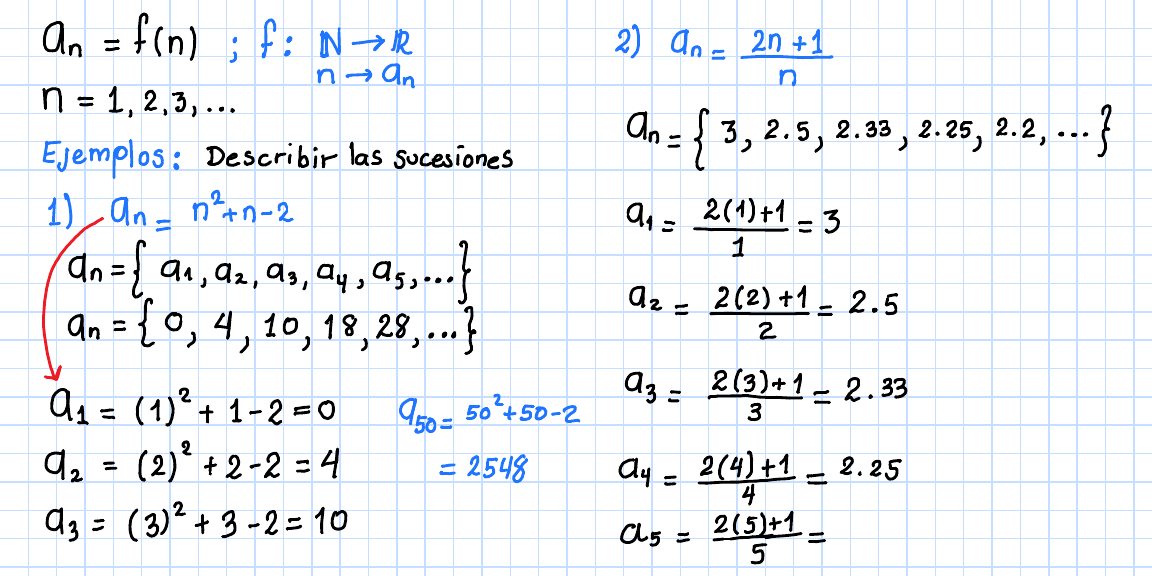 aₙ = f(n) ; f: ℕ → ℝ
n → aₙ
n = 1, 2, 3, ...
Ejemplos: Describir las sucesiones
1) aₙ = n² + n - 2
aₙ = { a₁, a₂, a₃, a₄, a₅, ... }
aₙ = { 0, 4, 10, 18, 28, ... }
a₁ = (1)² + 1 - 2 = 0
a₂ = (2)² + 2 - 2 = 4
a₃ = (3)² + 3 - 2 = 10
a₅₀ = 50² + 50 - 2
= 2548
2) aₙ = (2n + 1)/n
aₙ = { 3, 2.5, 2.33, 2.25, 2.2, ... }
a₁ = (2(1) + 1)/1 = 3
a₂ = (2(2) + 1)/2 = 2.5
a₃ = (2(3) + 1)/3 = 2.33
a₄ = (2(4) + 1)/4 = 2.25
a₅ = (2(5) + 1)/5 =